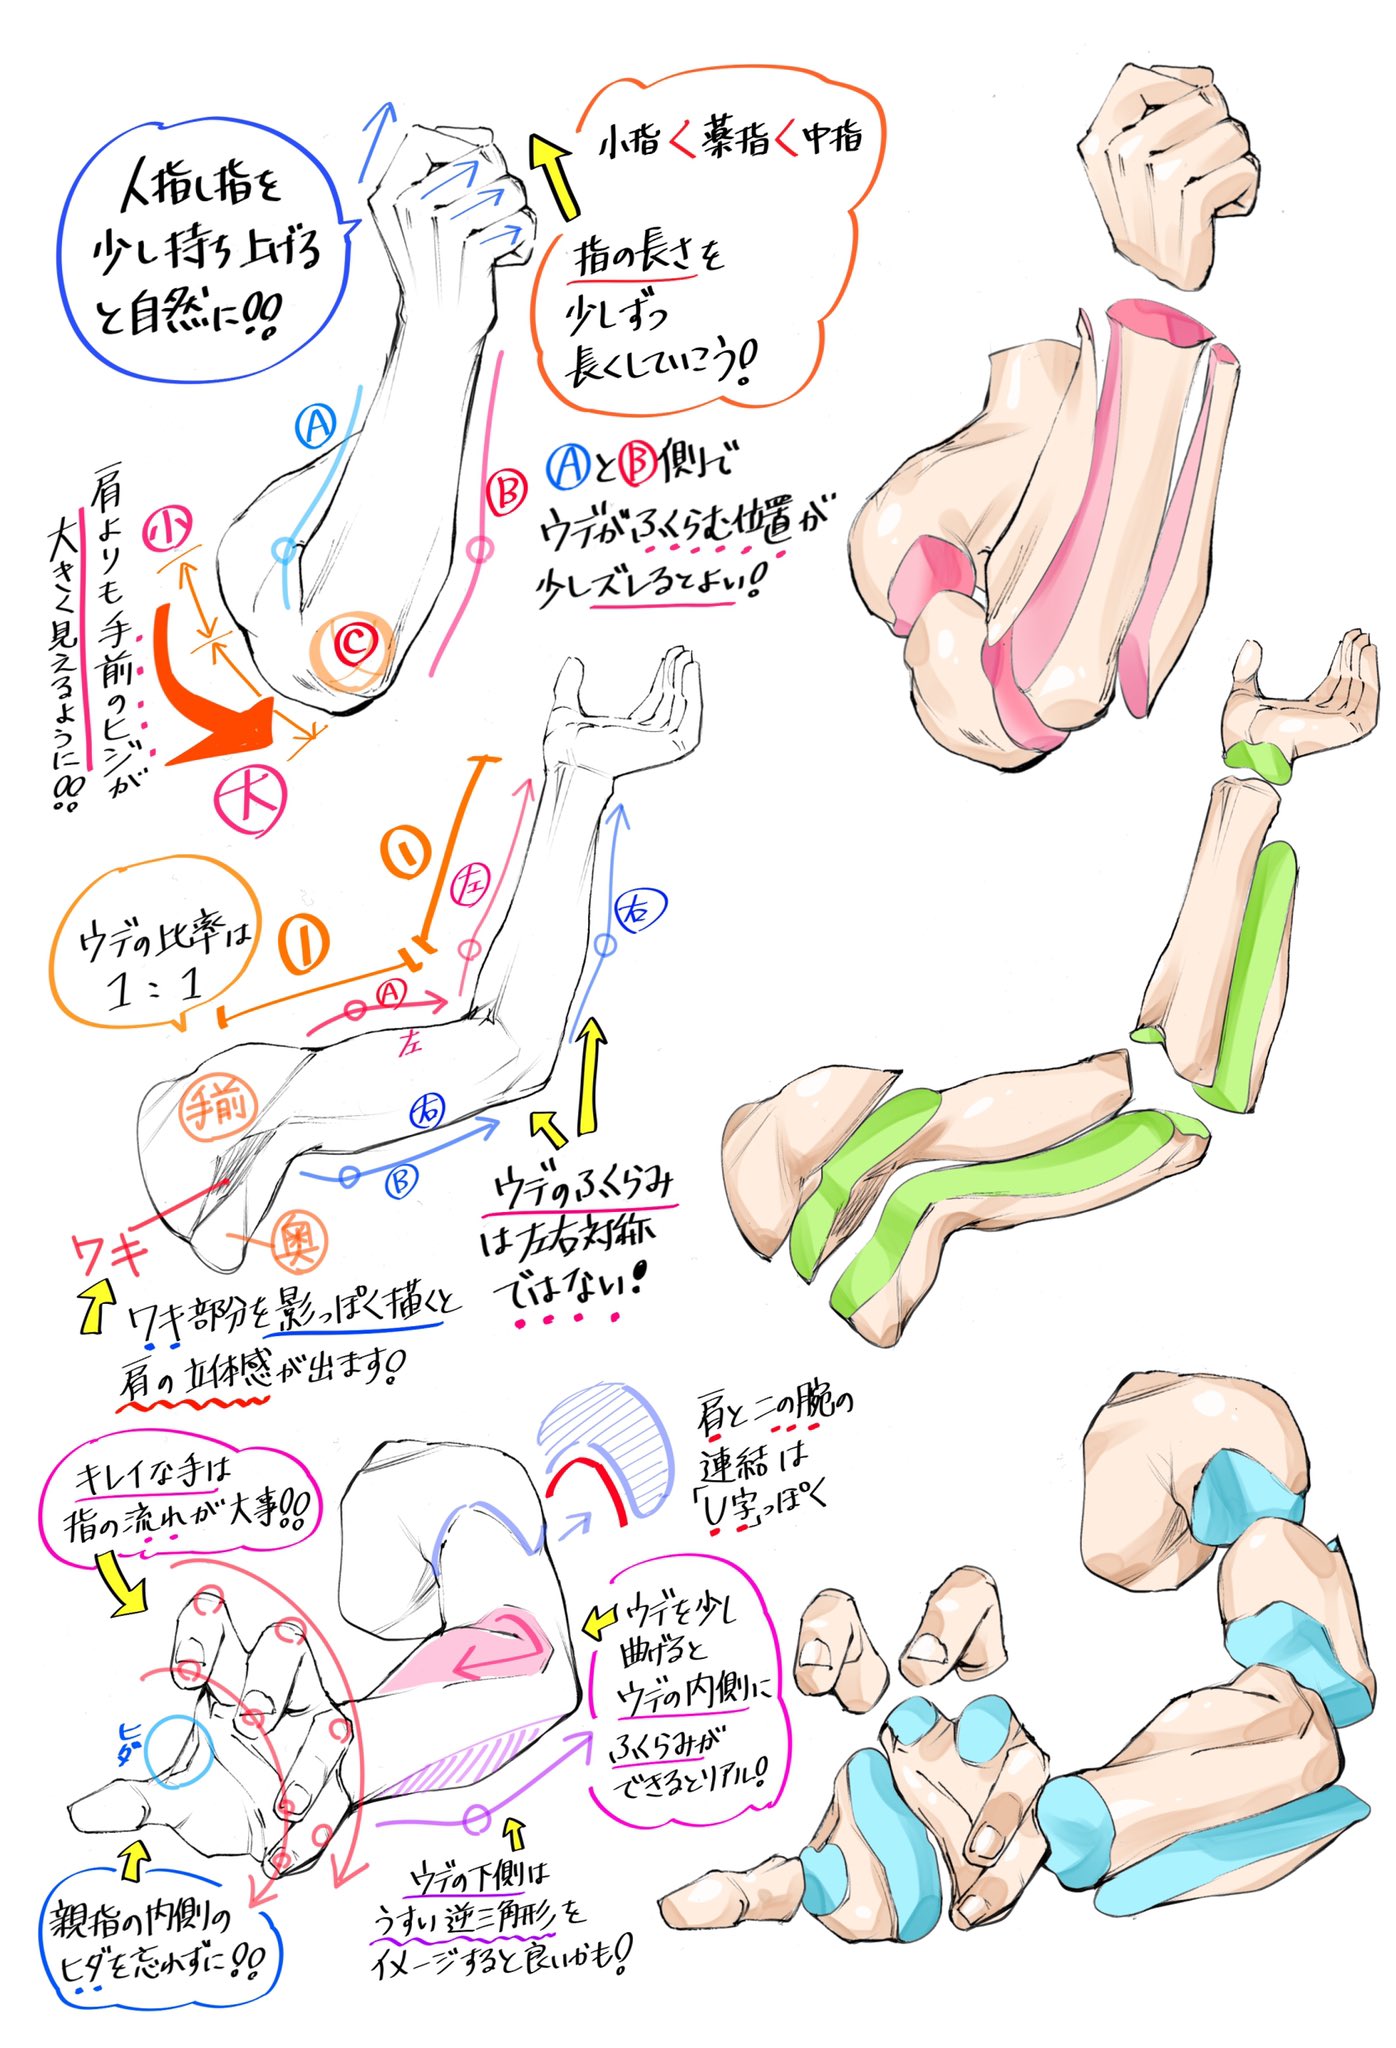 人指し指を
少し持ち上げる
と自然に!!
小指<薬指<中指
指の長さを
少しずつ
長くしていこう!
A
B
C
AとB側で
ウデがふくらむ位置が
少しズレるとよい!
肩よりも手前のヒジが
大きく見えるように!!
小
大
ウデの比率は
1:1
1
1
左
右
A
左
右
B
手前
奥
ワキ
ワキ部分を影っぽく描くと
肩の立体感が出ます!
ウデのふくらみ
は左右対称
ではない!
キレイな手は
指の流れが大事!!
肩と二の腕の
連結は
「U字」っぽく
ウデを少し
曲げると
ウデの内側に
ふくらみが
できるとリアル!
ヒダ
親指の内側の
ヒダを忘れずに!!
ウデの下側は
うすい逆三角形を
イメージすると良いかも!